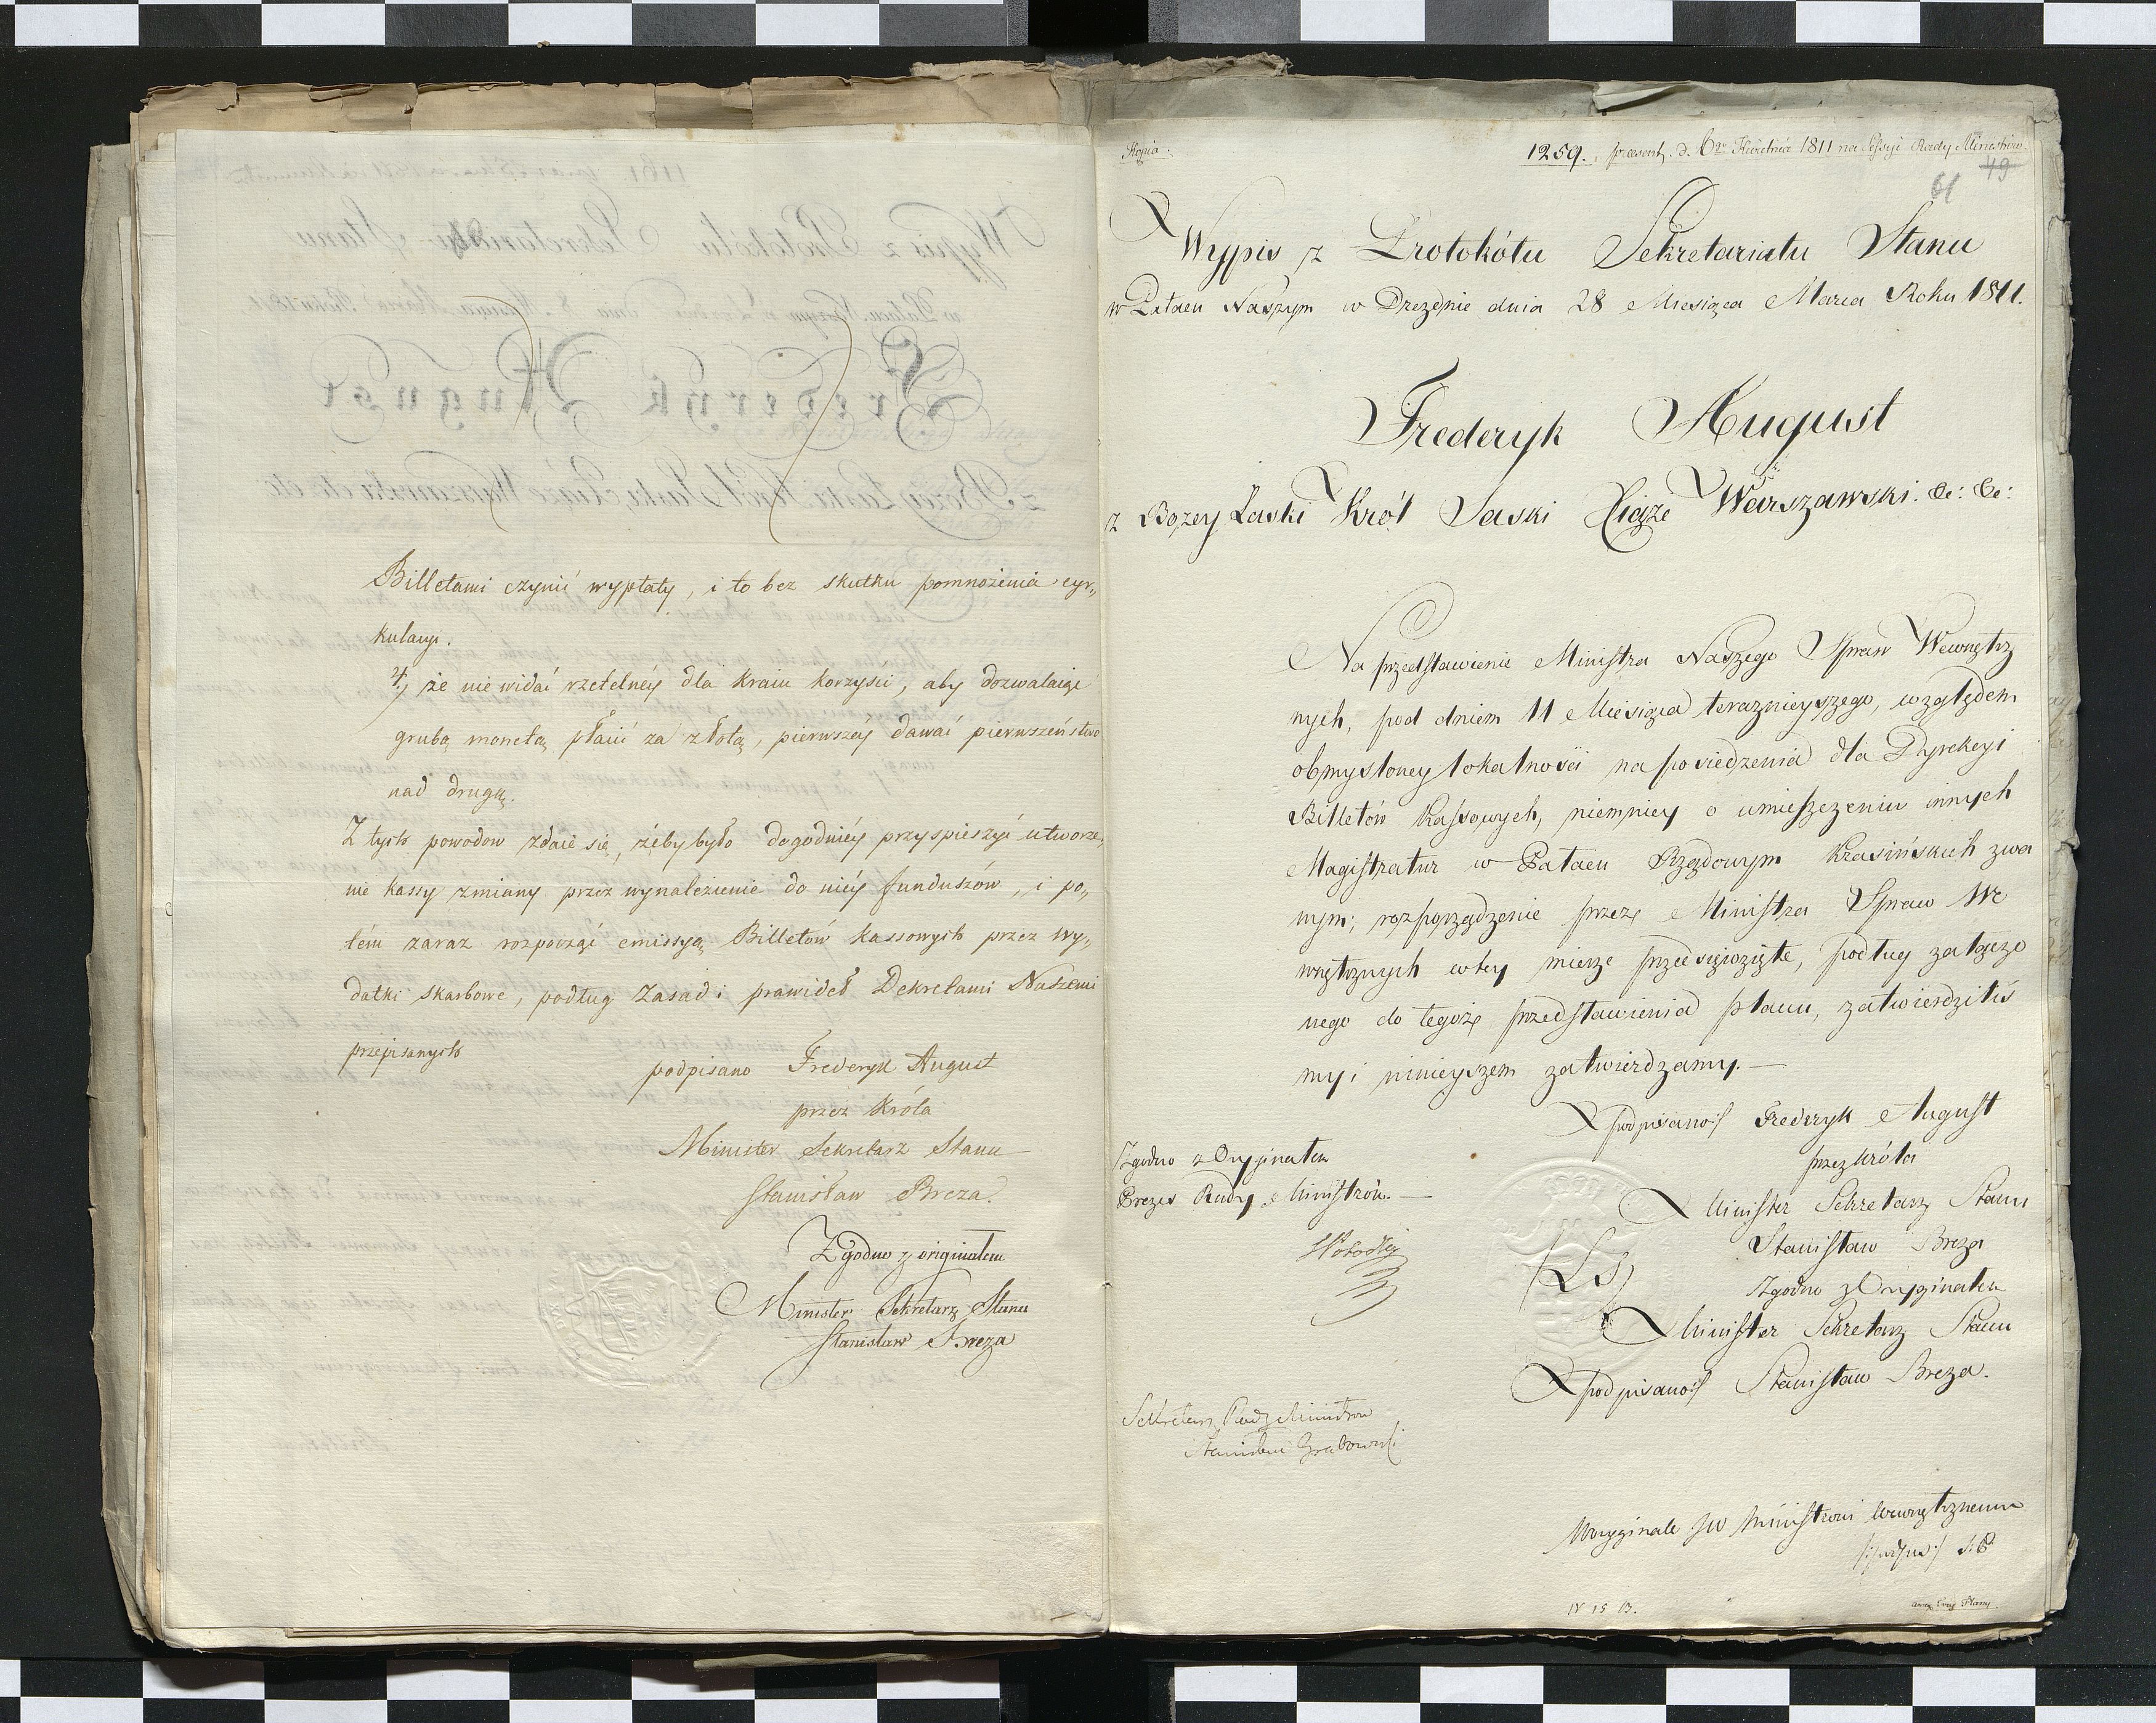 Billetami czynić wypłaty, i to bez skutku pomnożenia cyr„
kulacyi.
4, że nie widać rzetelnéy dla kraiu korzyści, aby dozwalaiąc
grubą monetą płacić za złotą, pierwszéy dawać pierwszeństwo
nad drugą.
Z tych powodow zdaie się, żéby było dogodniéy przyspieszyć utworze„
nie kassy zmiany przez wynalezienie do niéy funduszów, i po„
tém zaraz rozpocząć emissyą Billetów kassowych przez wy„
datki skarbowe, podług Zasad i prawideł Dekretami Naszemi
przepisanych
podpisano Frederyk August
przez Króla
Minister Sekretarz Stanu
Stanisław Breza.
Zgodno z originałem
Minister Sekretarz Stanu
Stanisław Breza
Kopia.
1259. praesent. d. 6go Kwietnia 1811 na Sessyi Rady Ministrów
49
61
Wypis z Protokółu Sekretariatu Stanu
w Pałacu Naszym w Dreznie dnia 28 Miesiąca Marca Roku 1811.
Frederyk August
z Bozey Łaski Król Saski Xiąże Warszawski. &c: &c:
Na przedstawienie Ministra Naszego Spraw Wewnętrz
nych, pod dniem 11 Miesiąca teraznieyszego, względem
obmysloney lokalności na posiedzenia dla Dyrekcyi
Billetów Kassowych, niemniey o umieszczeniu innych
Magistratur w Pałacu Rządowym Krasińskich zwa
nym; rozporządzenie przez Ministra Spraw We
wnętrznych w tey mierze przedsięwzięte, podług załączo
nego do tegoż przedstawienia planu, zatwierdziliś
my i ninieyszem zatwierdzamy. —
podpisano Frederyk August
przez Króla
Minister Sekretarz Stanu
Stanisław Breza
Zgodno z Oryginałem
Minister Sekretarz Stanu
podpisano Stanisław Breza.
(LS)
Zgodno z Oryginałem
Prezes Rady Ministrów. —
Sekretarz Rady Ministrow
Stanisław Grabowski
W oryginale JW Ministrowi Wewnętrznemu
IV 15 B.